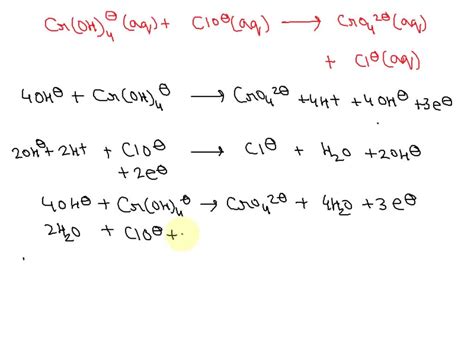 Cr(OH)₄⊖(aq) + ClO⊖(aq) ⟶ CrO₄²⊖(aq)
+ Cl⊖(aq)
4OH⊖ + Cr(OH)₄⊖ ⟶ CrO₄²⊖ + 4H+ + 4OH⊖ + 3e⊖
2OH⊖ + 2H+ + ClO⊖ ⟶ Cl⊖ + H₂O + 2OH⊖
+ 2e⊖
4OH⊖ + Cr(OH)₄⊖ → CrO₄²⊖ + 4H₂O + 3e⊖
2H₂O + ClO⊖ +